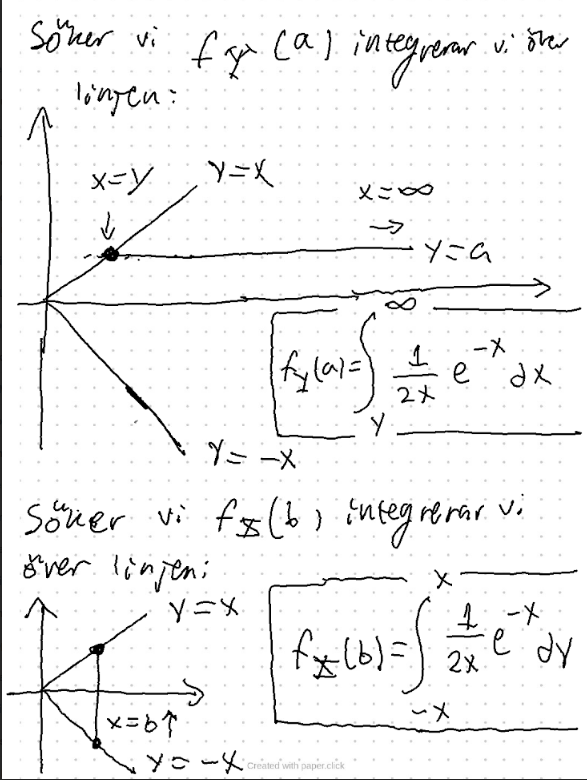 Söker vi f_Y(a) integrerar vi över
linjen:
x=y
y=x
x=∞
→
y=a
f_Y(a)=∫_y^∞ 1/(2x) e^{-x} dx
y=-x
Söker vi f_X(b) integrerar vi
över linjen:
y=x
f_X(b)=∫_{-x}^x 1/(2x) e^{-x} dy
x=b↑
y=-x
Created with paper.click